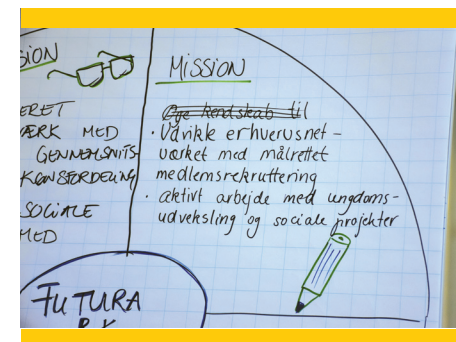 SION
ERET
ÆRK MED
GENNEMSNITS-
KØNSFORDELING
SOCIALE
MED
MISSION
Øge kendskab til
• Udvikle erhvervsnet-
værket med målrettet
medlemsrekruttering
• aktivt arbejde med ungdoms-
udveksling og sociale projekter
FUTURA
RK